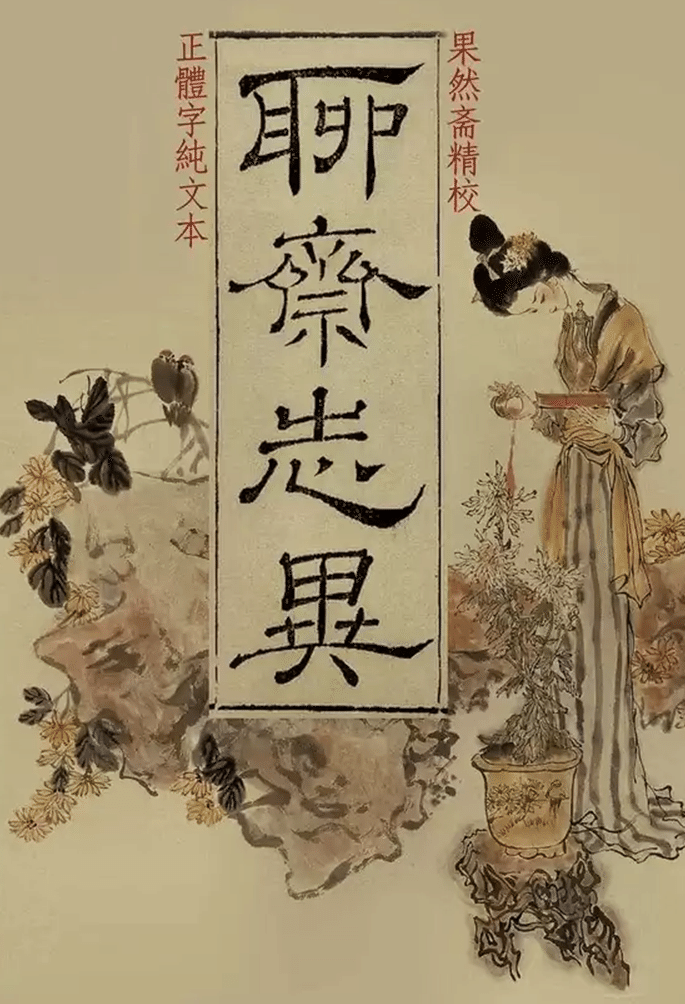 果然斋精校
聊齋志異
正體字純文本